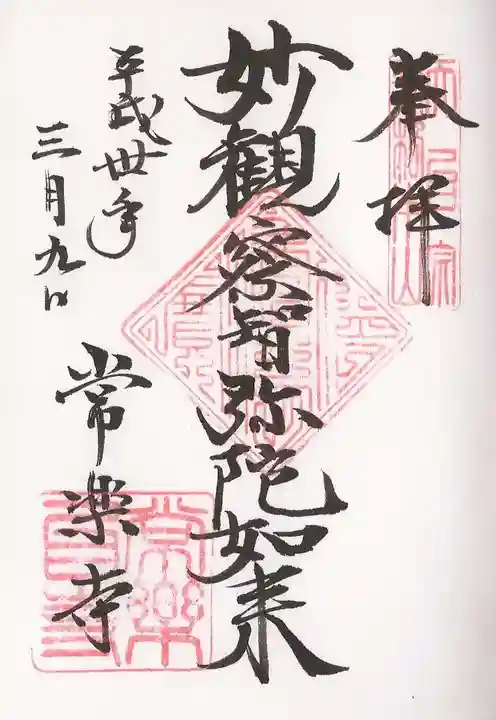 奉拝
妙観察智弥陀如来
平成卅年
三月九日
常楽寺